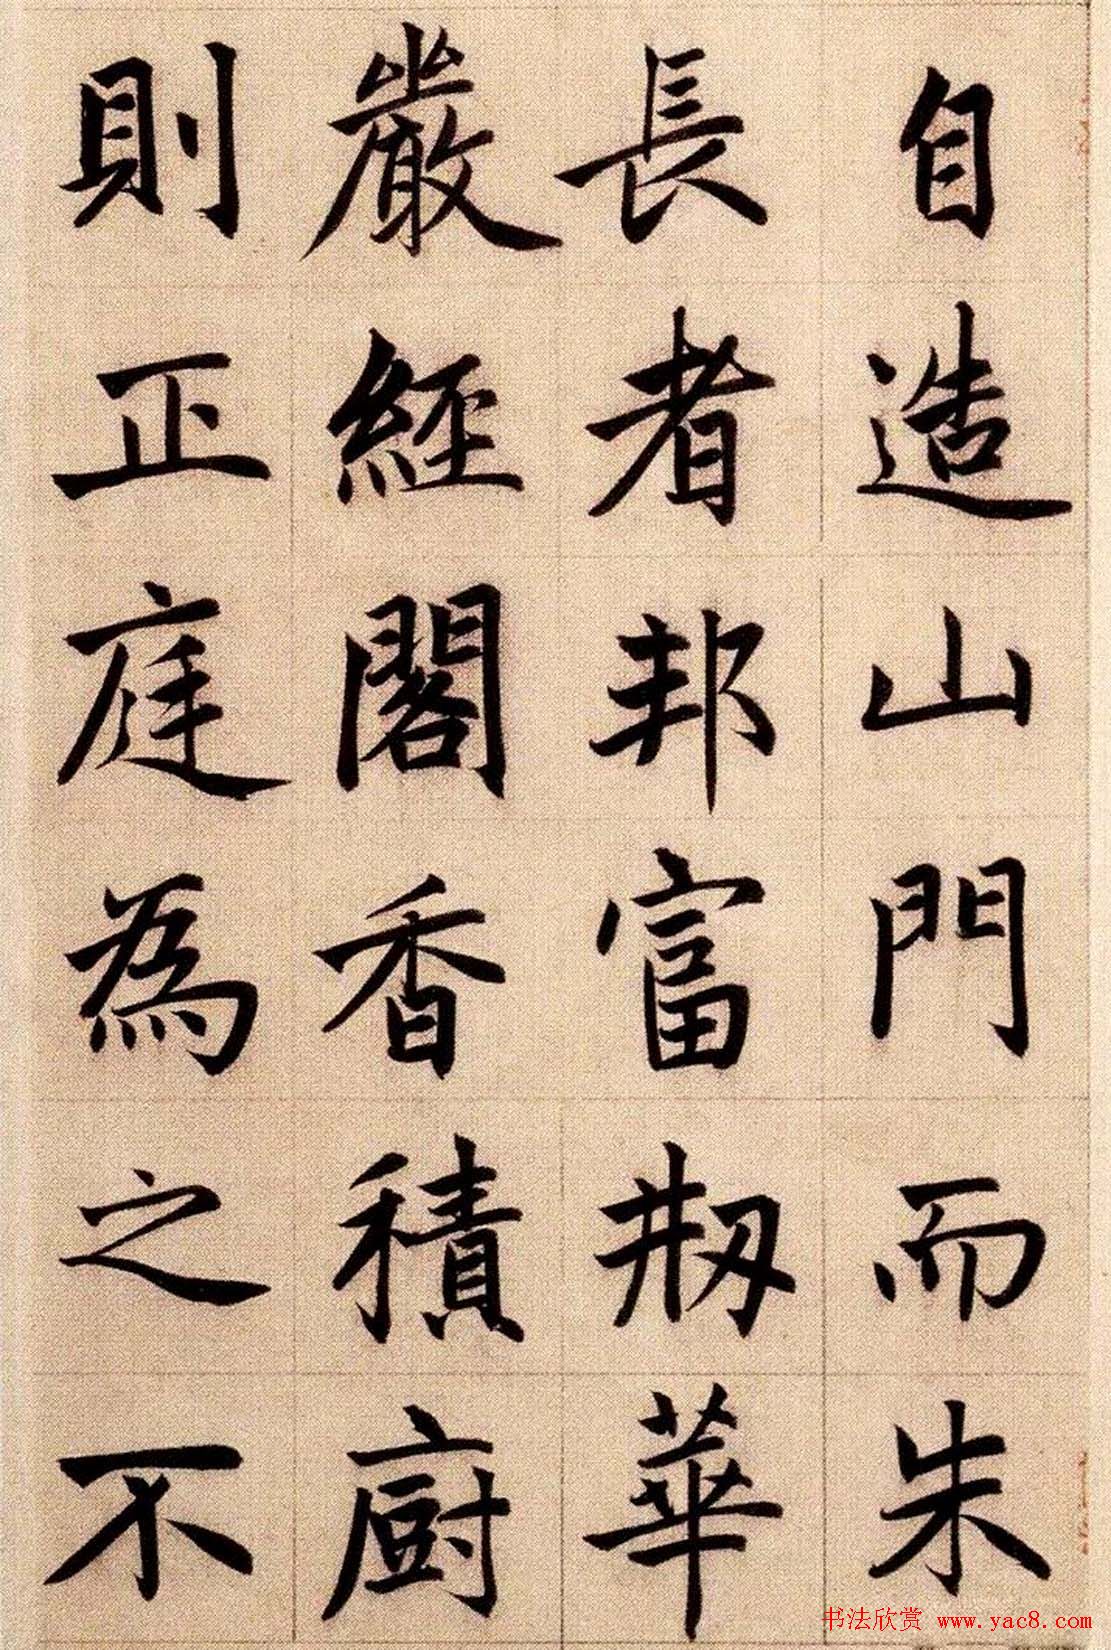 自造山門而朱
長者邦富刱華
嚴經閣香積廚
則正庭為之不
书法欣赏 www.yac8.com